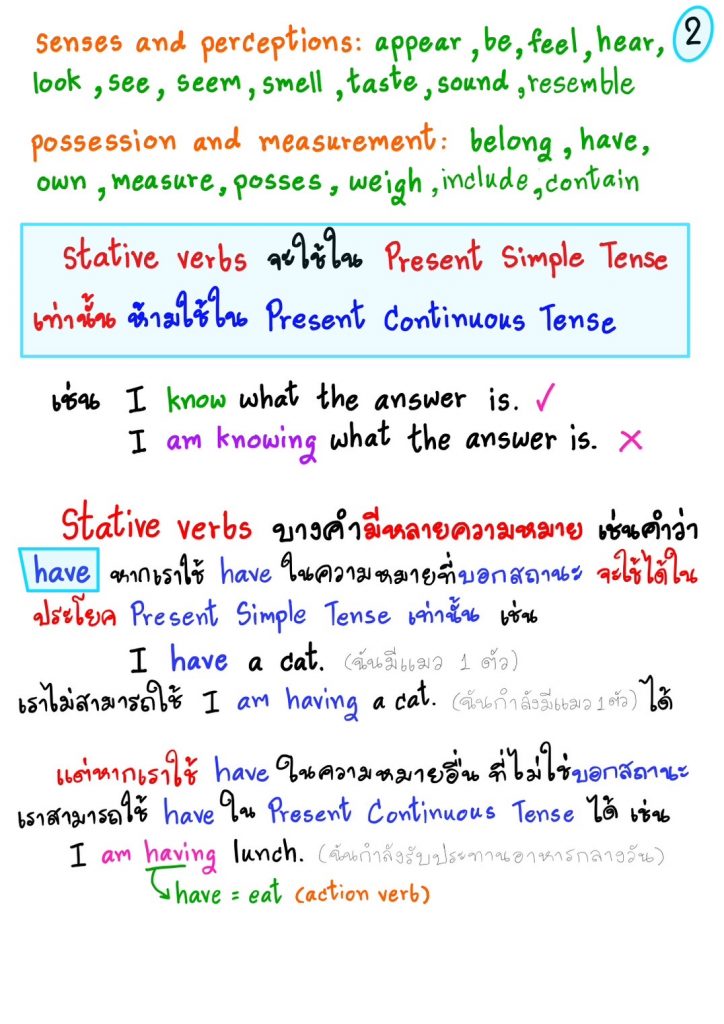 senses and perceptions: appear, be, feel, hear, 2
look, see, seem, smell, taste, sound, resemble
possession and measurement: belong, have,
own, measure, posses, weigh, include, contain
Stative verbs จะใช้ใน Present Simple Tense
เท่านั้น ห้ามใช้ใน Present Continuous Tense
เช่น I know what the answer is. ✓
I am knowing what the answer is. ✗
Stative verbs บางคำมีหลายความหมาย เช่นคำว่า
have หากเราใช้ have ในความหมายที่บอกสถานะ จะใช้ได้ใน
ประโยค Present Simple Tense เท่านั้น เช่น
I have a cat. (ฉันมีแมว 1 ตัว)
เราไม่สามารถใช้ I am having a cat. (ฉันกำลังมีแมว 1 ตัว) ได้
แต่หากเราใช้ have ในความหมายอื่น ที่ไม่ใช่บอกสถานะ
เราสามารถใช้ have ใน Present Continuous Tense ได้ เช่น
I am having lunch. (ฉันกำลังรับประทานอาหารกลางวัน)
have = eat (action verb)